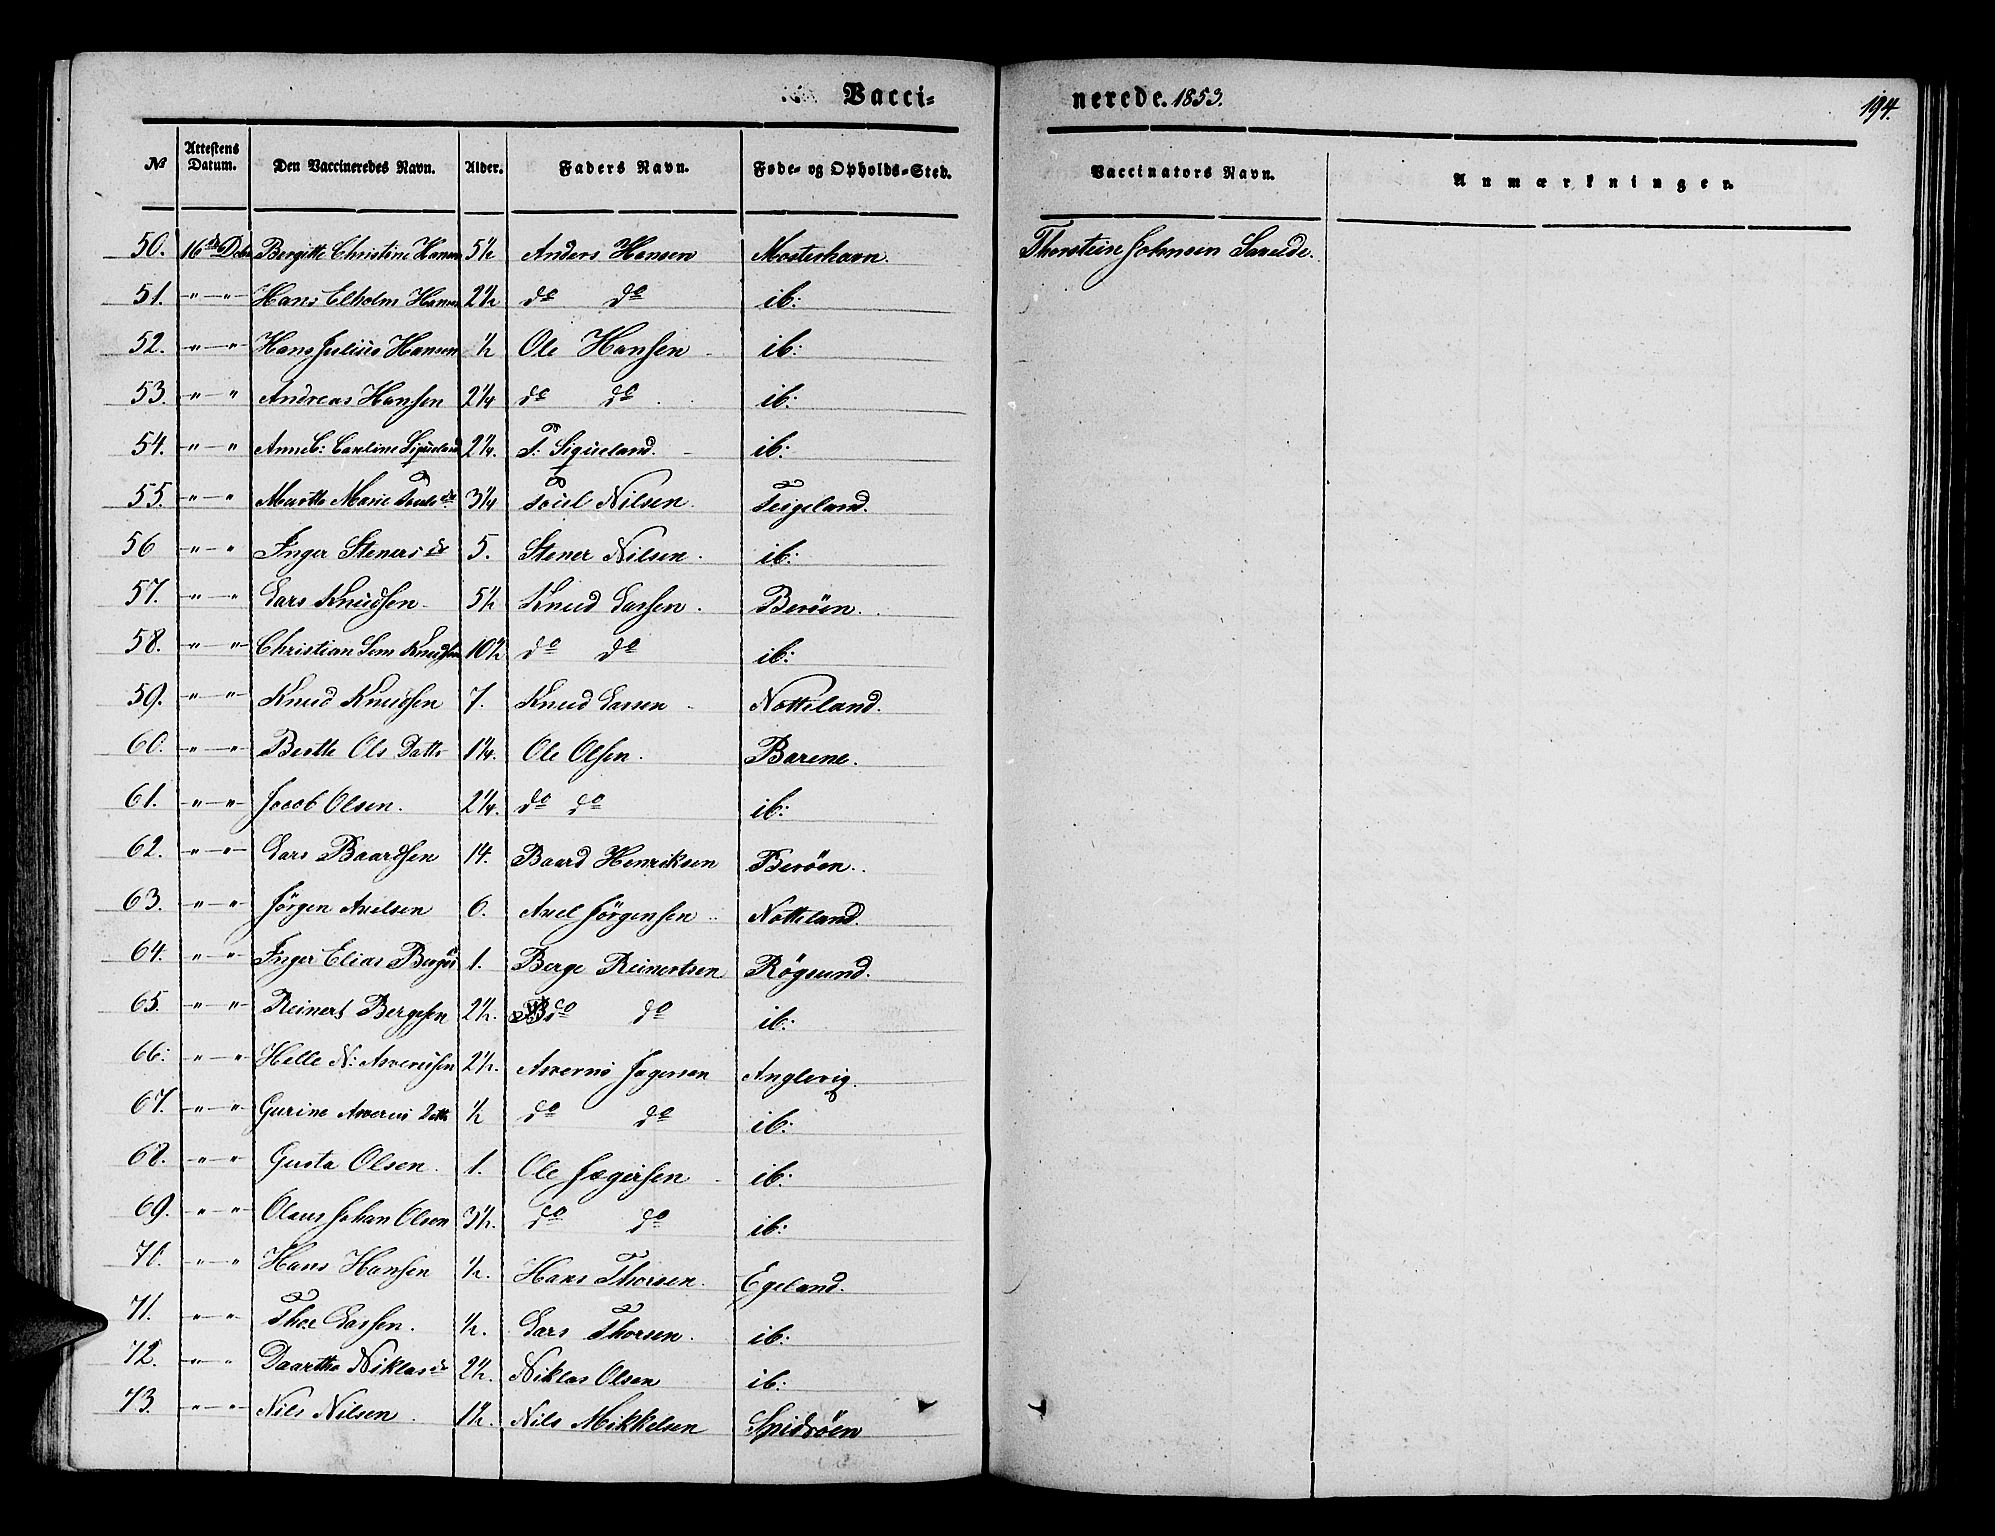 Vacci-
nerede. 1853.
194.
№ Attestens Datum. Den Vaccineredes Navn. Alder. Faders Navn. Føde- og Opholds-Sted. Vaccinators Navn. Anmærkninger.
50. 16de Debr Bergitte Christine Hansen 5½ Anders Hansen Mosterhavn. Thorstein Johnsen
51. " — " Hans Elholm Hansen 2½ do do ib:
52. " — " Hans Julius Hansen ½ Ole Hansen ib:
53. " — " Andreas Hansen 2¼ do do ib:
54. " — " Anne C: Caroline Siqueland 2¼. T. Siqueland. ib:
55. " — " Martha Marie 3¼ Poul Nilsen. Teigeland.
56 " — " Inger Steners dr 5. Stener Nilsen. ib:
57. " — " Lars Knudsen. 5½ Knud Larsen. Beröen.
58. " — " Christian Sem Knudsen 10½ do do ib:
59. " — " Knud Knudsen 7. Knud Larsen Notteland.
60. " — " Berthe Ols Dattr 1¼. Ole Olsen. Barene.
61. " — " Jacob Olsen. 2¼. do do ib:
62. " — " Lars Baardsen 14. Baard Henriksen Beröen.
63. " — " Jörgen Axelsen 6. Axel Jörgensen Notteland.
64. " — " Inger Elias 1. Berge Reinertsen Røgsund.
65. " — " Reinert Bergesen 2½. do do ib:
66. " — " Helle N: Asverusen 2½. Asverus Jegersen Anglevig.
67. " — " Gurine Asverus Dattr ½ do do ib:
68. " — " Gusta Olsen. 1. Ole Jægersen ib:
69. " — " Olaus Johan Olsen 3½. do do ib:
70. " — " Hans Hansen ½. Hans Thorsen. Egeland.
71. " — " Thor Larsen. ½. Lars Thorsen. ib:
72. " — " Daarthe Niklas dr 2½. Niklas Olsen ib:
73. " — " Nils Nilsen. 1½. Nils Mikkelsen Spidsöen